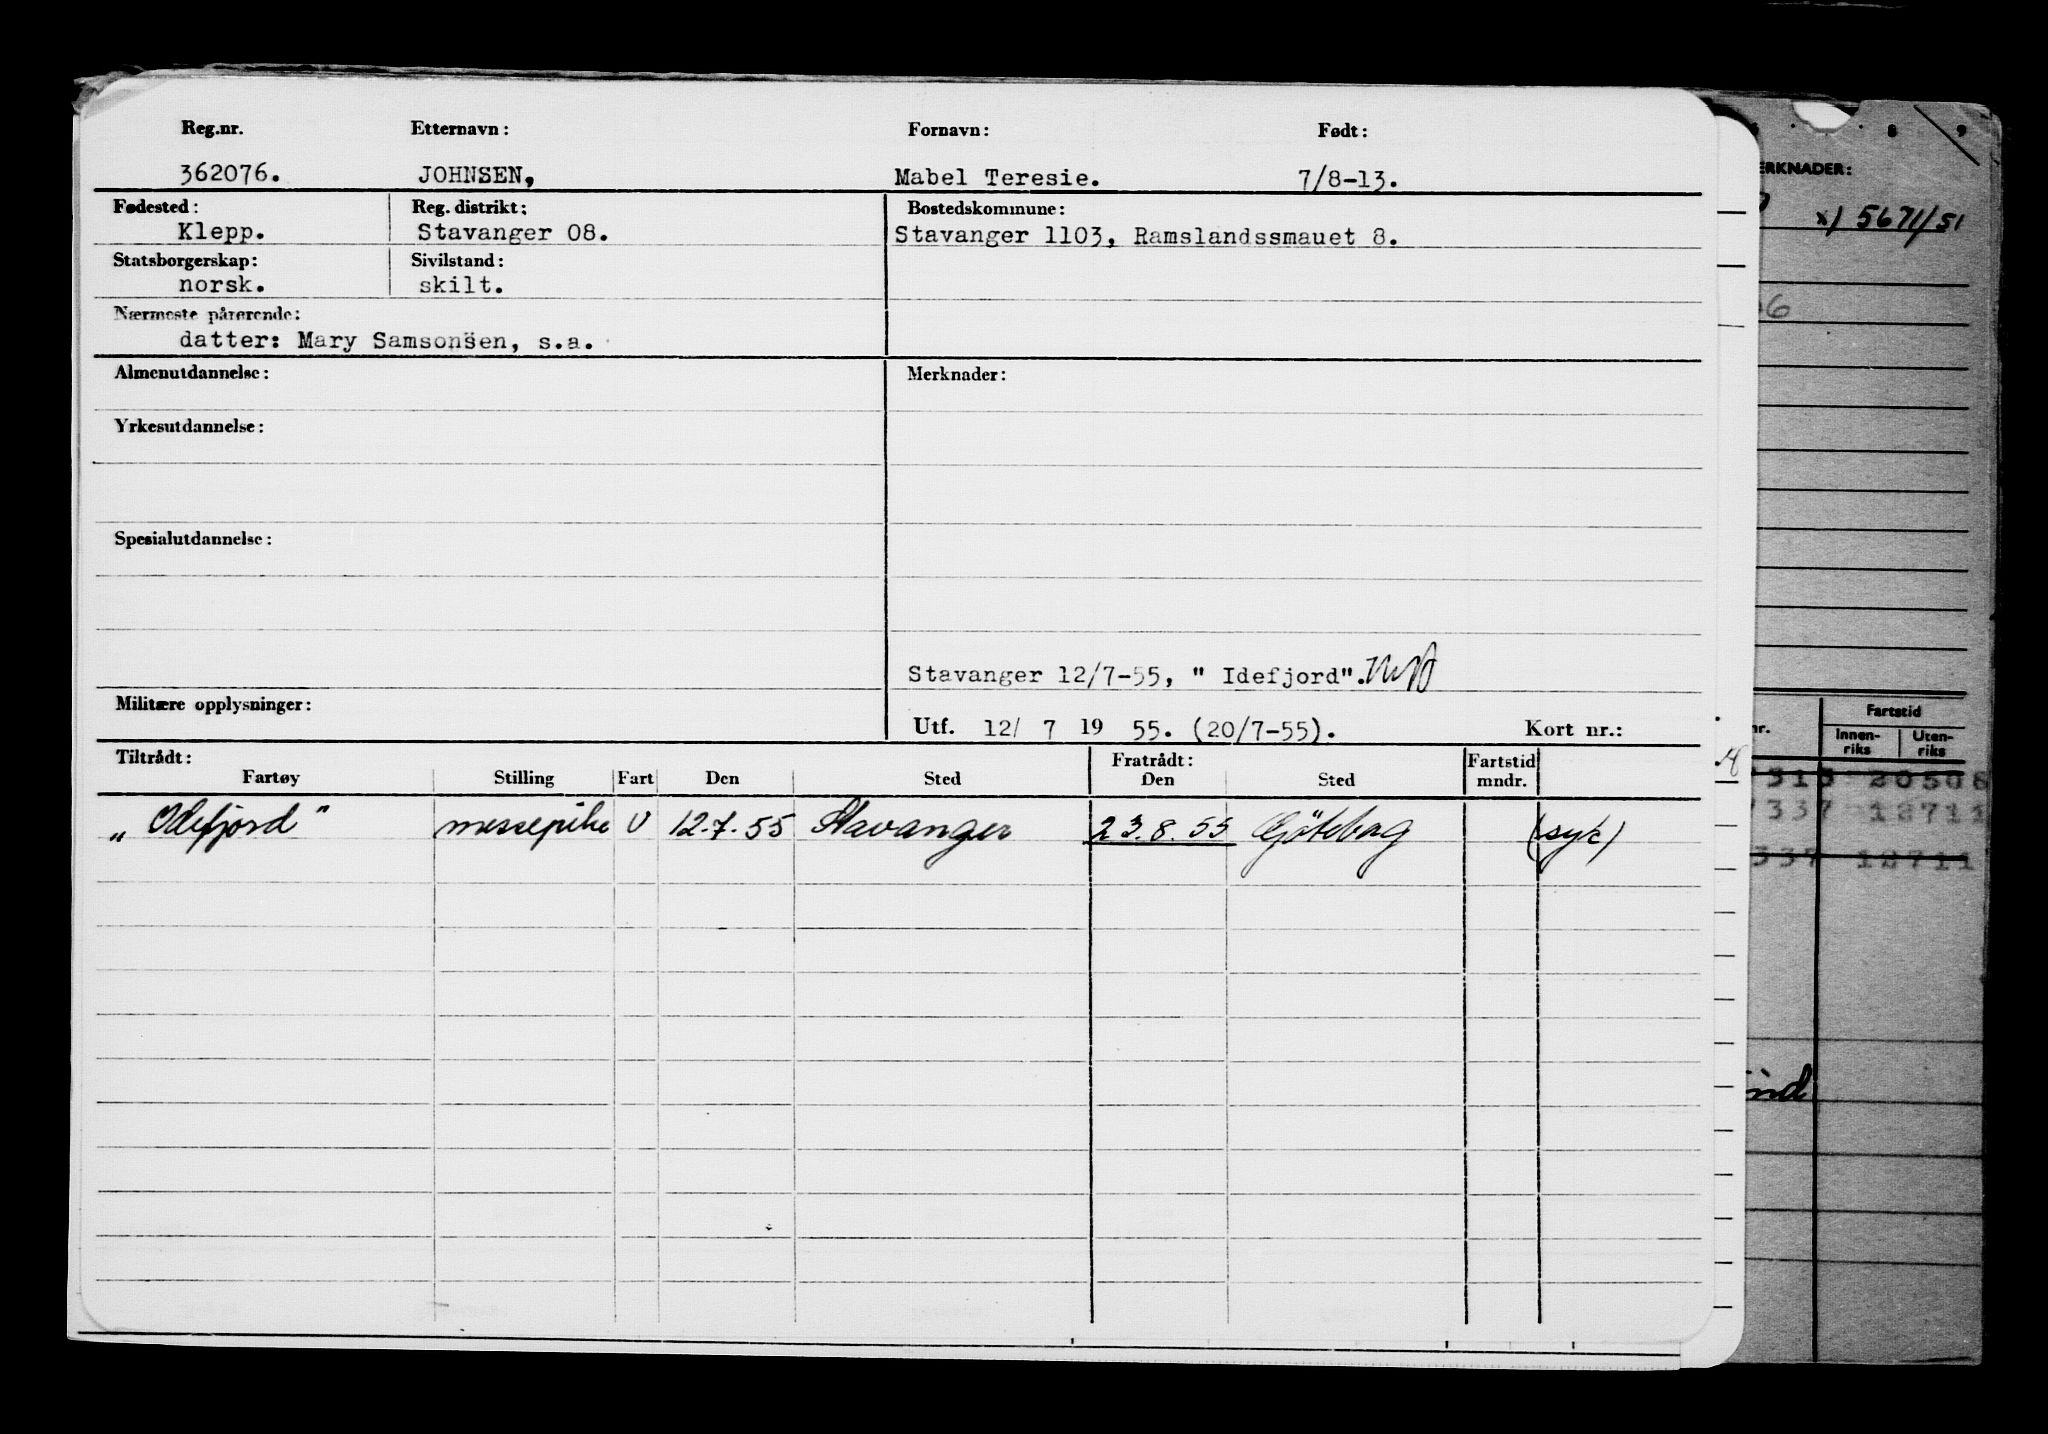 Reg.nr. Etternavn: Fornavn: Født:
362076. JOHNSEN, Mabel Teresie. 7/8-13.
Fødested: Reg. distrikt: Bostedskommune:
Klepp. Stavanger 08. Stavanger 1103, Ramslandssmauet 8.
Statsborgerskap: Sivilstand:
norsk. skilt.
Nærmeste pårørende:
datter: Mary Samsonsen, s.a.
Almenutdannelse: Merknader:
Yrkesutdannelse:
Spesialutdannelse:
Stavanger 12/7-55, " Idefjord".
Militære opplysninger:
Utf. 12/ 7 19 55. (20/7-55). Kort nr.:
Tiltrådt: Fratrådt: Fartstid
Fartøy Stilling Fart Den Sted Den Sted mndr.
„ Idefjord" messepike U 12.7.55 Stavanger 23.8.55 Göteborg (syk)
8 9
ERKNADER:
x) 5671/51
6
nr. Fartstid
Innen- Uten-
riks riks
313 20506
337 12711
337 12711